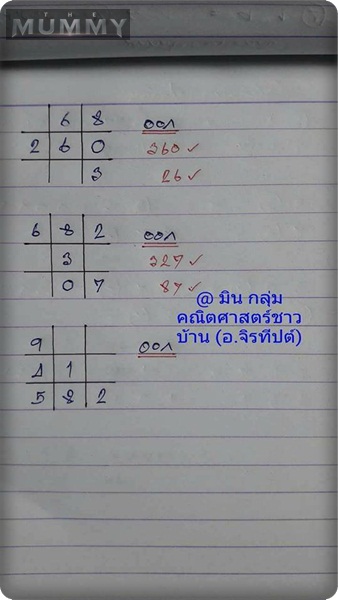 THE
MUMMY
6 8 ออก
2 6 0 360 ✓
3 26 ✓
6 8 2 ออก
3 327 ✓
0 7 87 ✓
@ มิน กลุ่ม
คณิตศาสตร์ชาว
บ้าน (อ.จิรทีปต์)
9 ออก
4 1
5 8 2